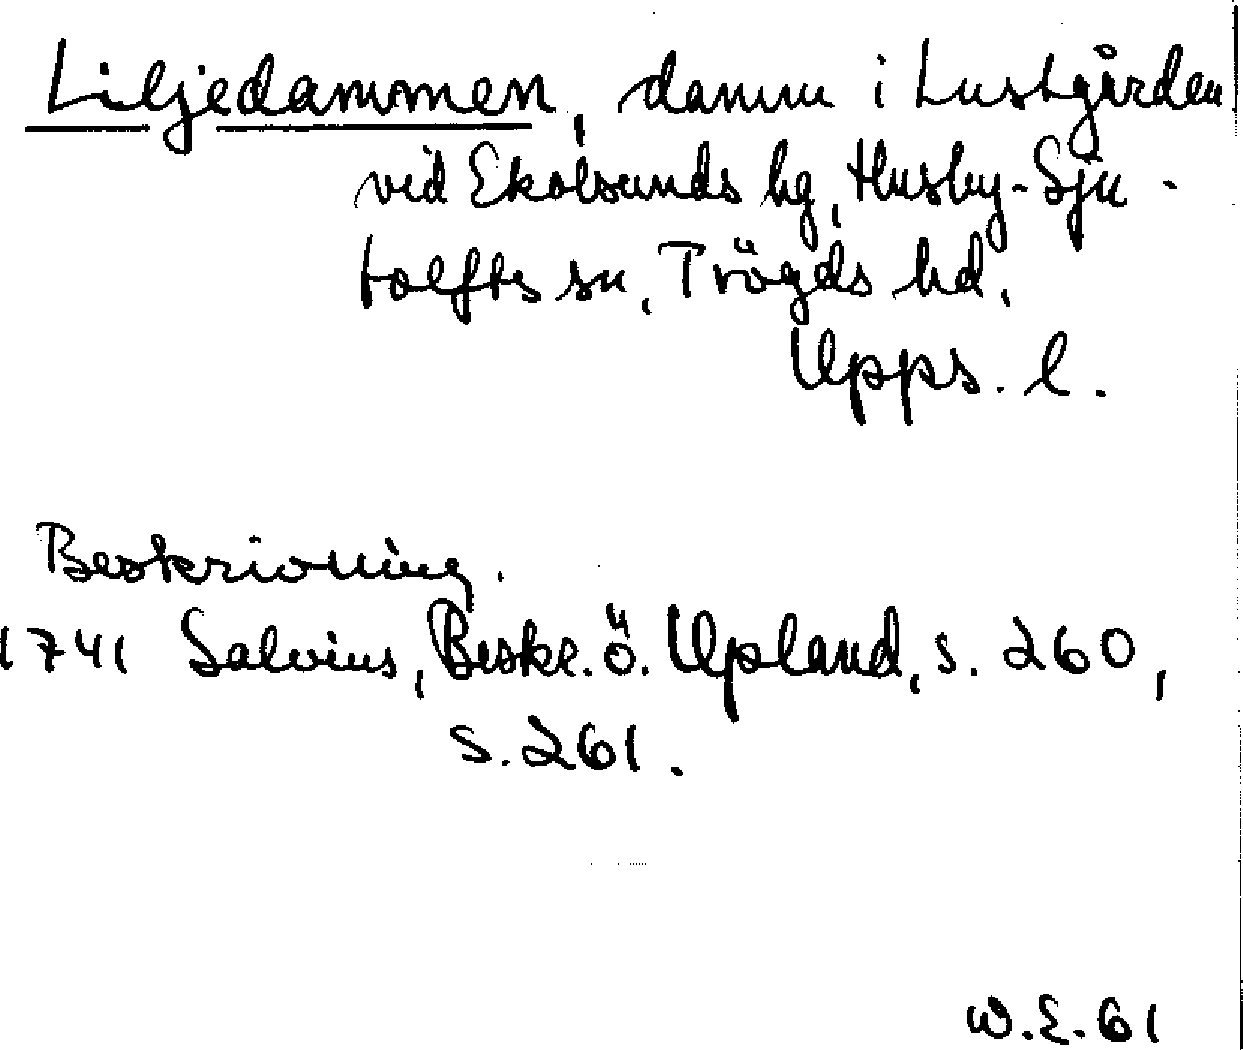 Liljedammen, damm i Lustgården
vid Ekolsunds hg, Husby-Sju-
tolfts sn, Trögds hd,
Upps. l.
Beskrivning.
1741 Salvius, Beskr. ö. Upland, s. 260,
s. 261.
W.E. 61